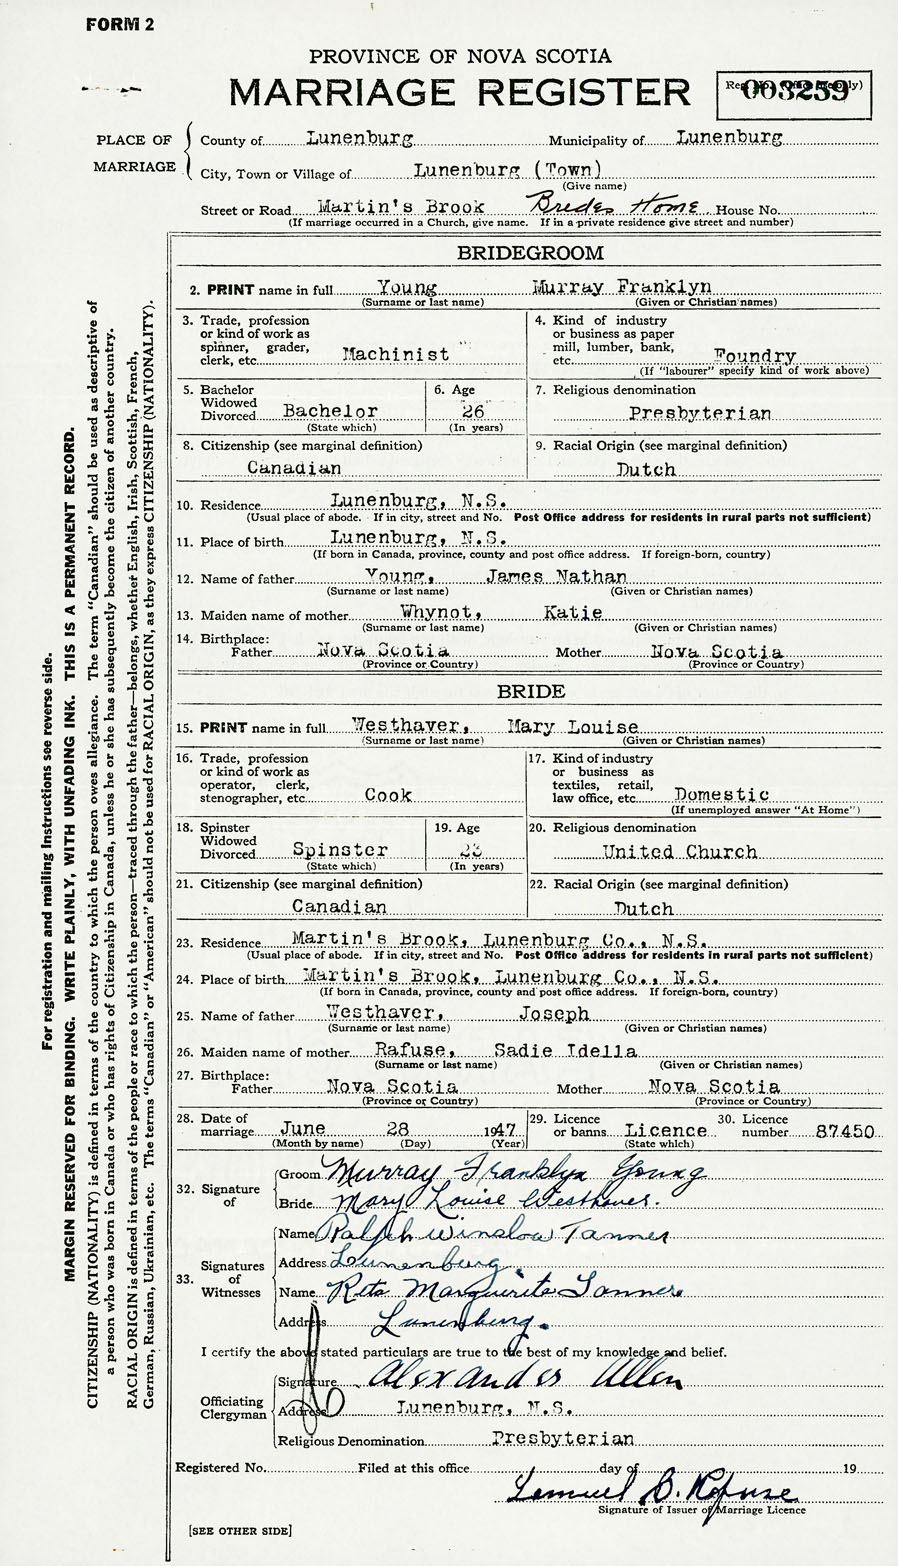 FORM 2
PROVINCE OF NOVA SCOTIA
MARRIAGE REGISTER
003259
PLACE OF MARRIAGE
County of Lunenburg Municipality of Lunenburg
City, Town or Village of Lunenburg (Town)
(Give name)
Street or Road Martin's Brook Brides Home House No.
(If marriage occurred in a Church, give name. If in a private residence give street and number)
BRIDEGROOM
2. PRINT name in full Young Murray Franklyn
(Surname or last name) (Given or Christian names)
3. Trade, profession or kind of work as spinner, grader, clerk, etc. Machinist
4. Kind of industry or business as paper mill, lumber, bank, etc. Foundry
(If "labourer" specify kind of work above)
5. Bachelor Widowed Divorced Bachelor
(State which)
6. Age 26
(In years)
7. Religious denomination
Presbyterian
8. Citizenship (see marginal definition)
Canadian
9. Racial Origin (see marginal definition)
Dutch
10. Residence Lunenburg, N.S.
(Usual place of abode. If in city, street and No. Post Office address for residents in rural parts not sufficient)
11. Place of birth Lunenburg, N.S.
(If born in Canada, province, county and post office address. If foreign-born, country)
12. Name of father Young, James Nathan
(Surname or last name) (Given or Christian names)
13. Maiden name of mother Whynot, Katie
(Surname or last name) (Given or Christian names)
14. Birthplace:
Father Nova Scotia Mother Nova Scotia
(Province or Country) (Province or Country)
BRIDE
15. PRINT name in full Westhaver, Mary Louise
(Surname or last name) (Given or Christian names)
16. Trade, profession or kind of work as operator, clerk, stenographer, etc. Cook
17. Kind of industry or business as textiles, retail, law office, etc. Domestic
(If unemployed answer "At Home")
18. Spinster Widowed Divorced Spinster
(State which)
19. Age
(In years)
20. Religious denomination
United Church
21. Citizenship (see marginal definition)
Canadian
22. Racial Origin (see marginal definition)
Dutch
23. Residence Martin's Brook, Lunenburg Co., N.S.
(Usual place of abode. If in city, street and No. Post Office address for residents in rural parts not sufficient)
24. Place of birth Martin's Brook, Lunenburg Co., N.S.
(If born in Canada, province, county and post office address. If foreign-born, country)
25. Name of father Westhaver, Joseph
(Surname or last name) (Given or Christian names)
26. Maiden name of mother Rafuse, Sadie Idella
(Surname or last name) (Given or Christian names)
27. Birthplace:
Father Nova Scotia Mother Nova Scotia
(Province or Country) (Province or Country)
28. Date of marriage June 28 1947
(Month by name) (Day) (Year)
29. Licence or banns Licence
(State which)
30. Licence number 87450
32. Signature of
Groom Murray Franklyn Young
Bride Mary Louise Westhaver.
33. Signatures of Witnesses
Name Ralph Winslow Tanner
Address Lunenburg.
Name Rita Marguerite Tanner
Address Lunenburg.
I certify the above stated particulars are true to the best of my knowledge and belief.
Officiating Clergyman
Signature Alexander Allen
Address Lunenburg, N.S.
Religious Denomination Presbyterian
Registered No. Filed at this office day of 19
Lemuel B. Rafuse
Signature of Issuer of Marriage Licence
[SEE OTHER SIDE]
For registration and mailing instructions see reverse side.
MARGIN RESERVED FOR BINDING. WRITE PLAINLY, WITH UNFADING INK. THIS IS A PERMANENT RECORD.
CITIZENSHIP (NATIONALITY) is defined in terms of the country to which the person owes allegiance. The term "Canadian" should be used as descriptive of
a person who was born in Canada or who has rights of Citizenship in Canada, unless he or she has subsequently become the citizen of another country.
RACIAL ORIGIN is defined in terms of the people or race to which the person—traced through the father—belongs, whether English, Irish, Scottish, French,
German, Russian, Ukrainian, etc. The terms "Canadian" or "American" should not be used for RACIAL ORIGIN, as they express CITIZENSHIP (NATIONALITY).